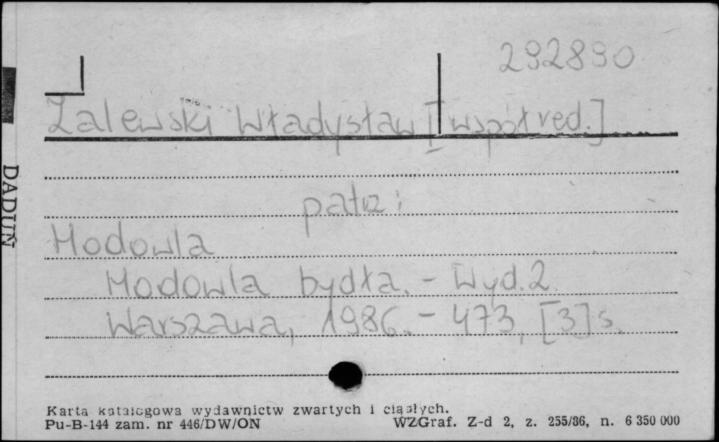 292890
Zalewski Władysław [współred.]
DADUŃ
patrz:
Hodowla
Hodowla bydła. - Wyd. 2.
Warszawa, 1986. - 473, [3] s.
Karta katalogowa wydawnictw zwartych i ciągłych.
Pu-B-144 zam. nr 446/DW/ON WZGraf. Z-d 2, z. 255/86, n. 6 350 000